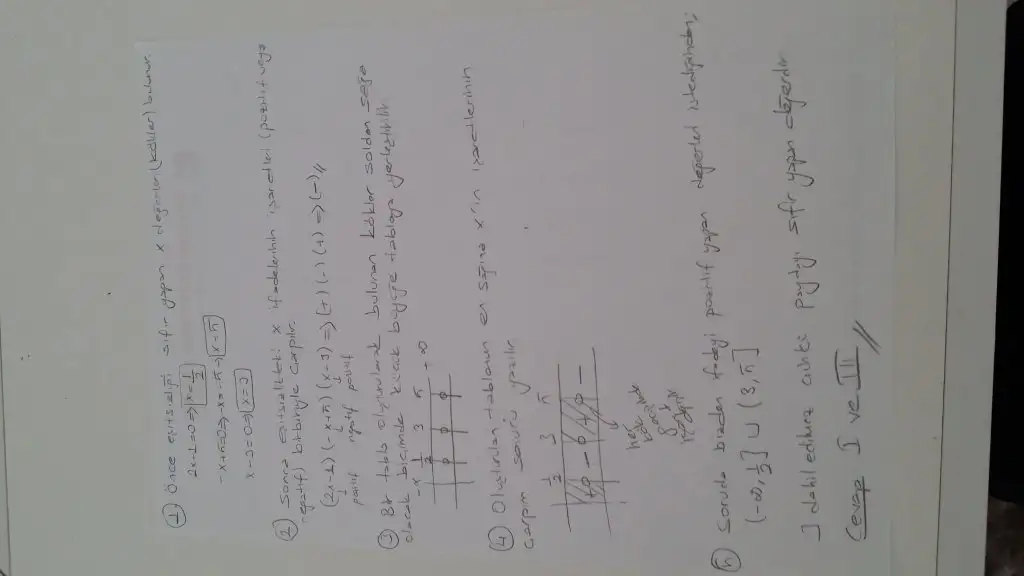 ① Önce eşitsizliği sıfır yapan x değerleri (kökler) bulunur.
2x-1=0 => x=1/2
-x+π=0 => -x=-π => x=π
x-3=0 => x=3
② Sonra eşitsizlikteki x ifadelerinin işaretleri (pozitif veya
negatif) birbiriyle çarpılır.
(2x-1)(-x+π)(x-3) => (+)(-)(+) => (-)//
pozitif negatif pozitif
③ Bir tablo oluşturularak bulunan kökler soldan sağa
olacak biçimde küçük büyüğe tabloya yerleştirilir.
-∞ 1/2 3 π +∞
④ Oluşturulan tablonun en sağına x'in işaretlerinin
çarpım sonucu yazılır.
1/2 3 π
+ - + -
her
⑤ Soruda bizden ifadeyi pozitif yapan değerleri istediğinden;
(-∞, 1/2] ∪ (3, π]
3 dahil edilmez çünkü paydayı sıfır yapan değerdir.
Cevap I ve III //